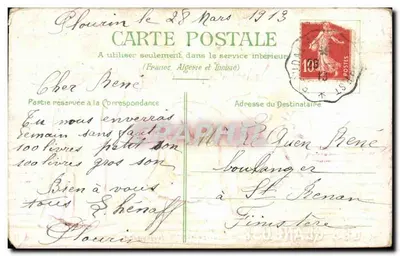 Plourin le 28 Mars 1913
CARTE POSTALE
A utiliser seulement dans le service intérieur
(France, Algérie et Tunisie)
Cher René
Partie réservée à la Correspondance
Adresse du Destinataire
Tu nous enverras
demain sans faut
100 livres petit son
100 livres gros son
Bien à vous
tous L. Hénaff
Plourin
Mr Le Guen René
boulanger
à St Renan
Finistère
10c
POSTES